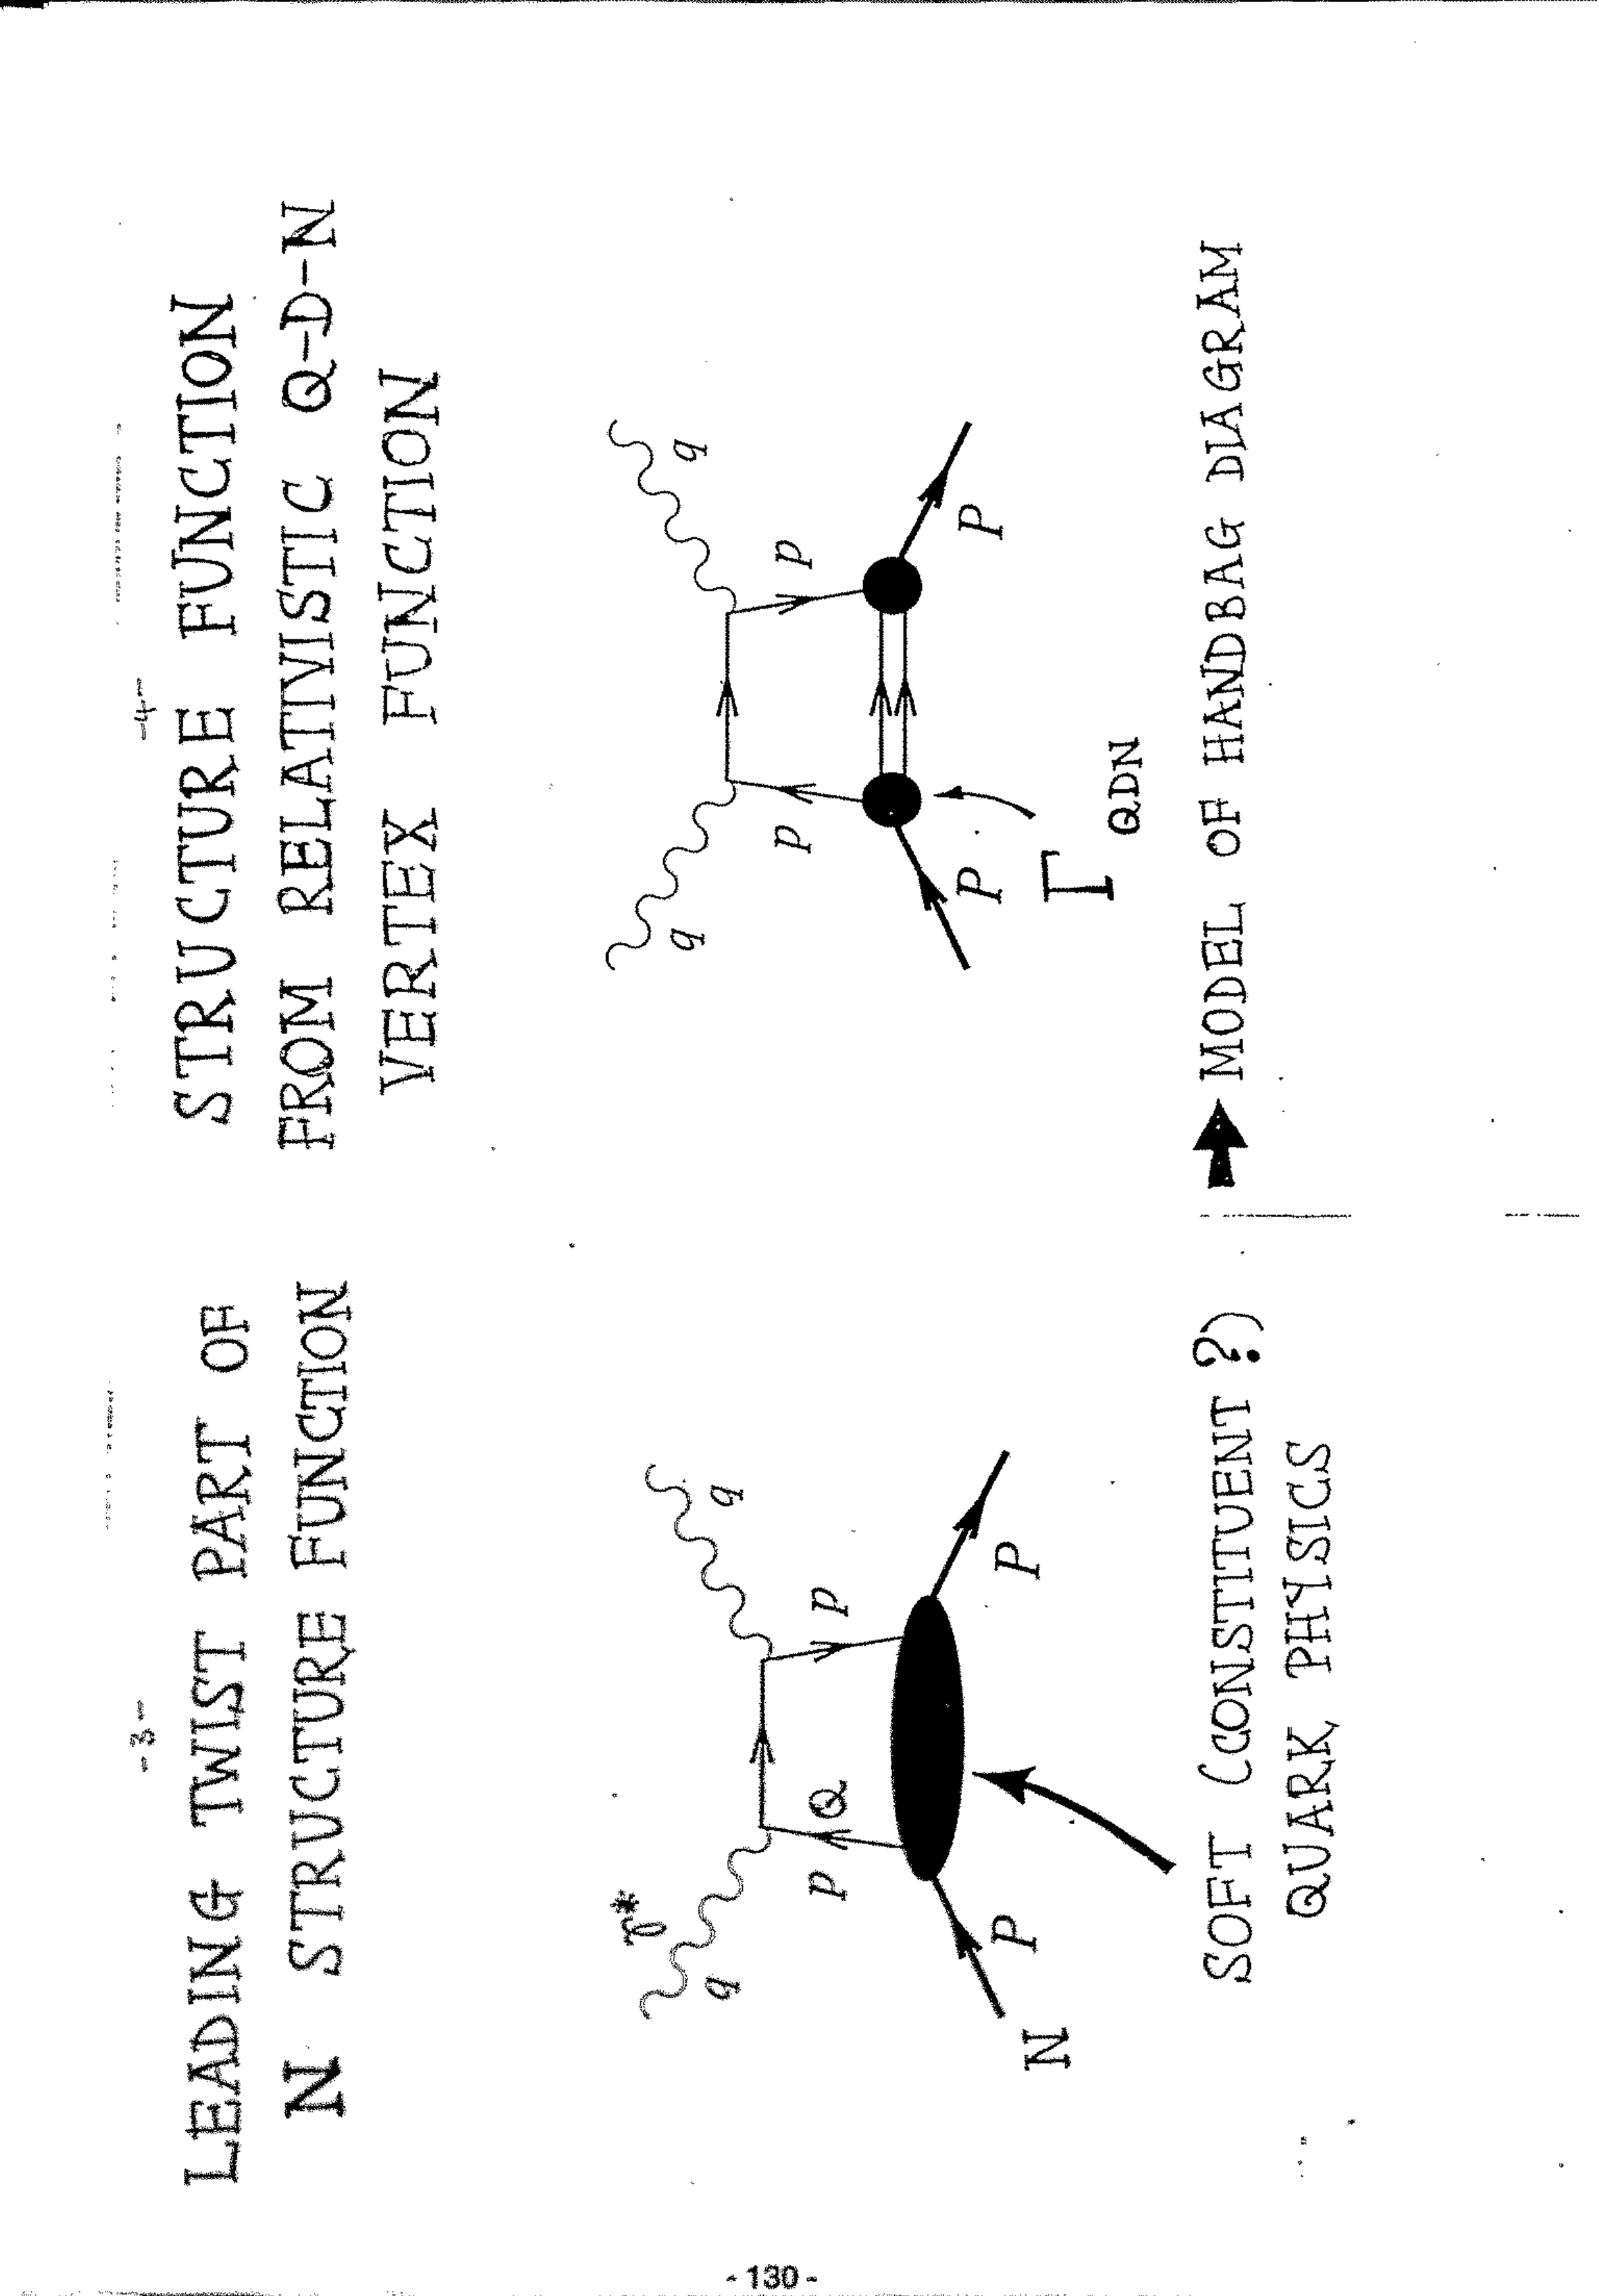 -3-
LEADING TWIST PART OF
N STRUCTURE FUNCTION
γ*
q
q
p
Q
p
N
P
P
SOFT (CONSTITUENT?)
QUARK PHYSICS
-4-
STRUCTURE FUNCTION
FROM RELATIVISTIC Q-D-N
VERTEX FUNCTION
q
q
p
p
P
P
Γ QDN
MODEL OF HANDBAG DIAGRAM
-130-